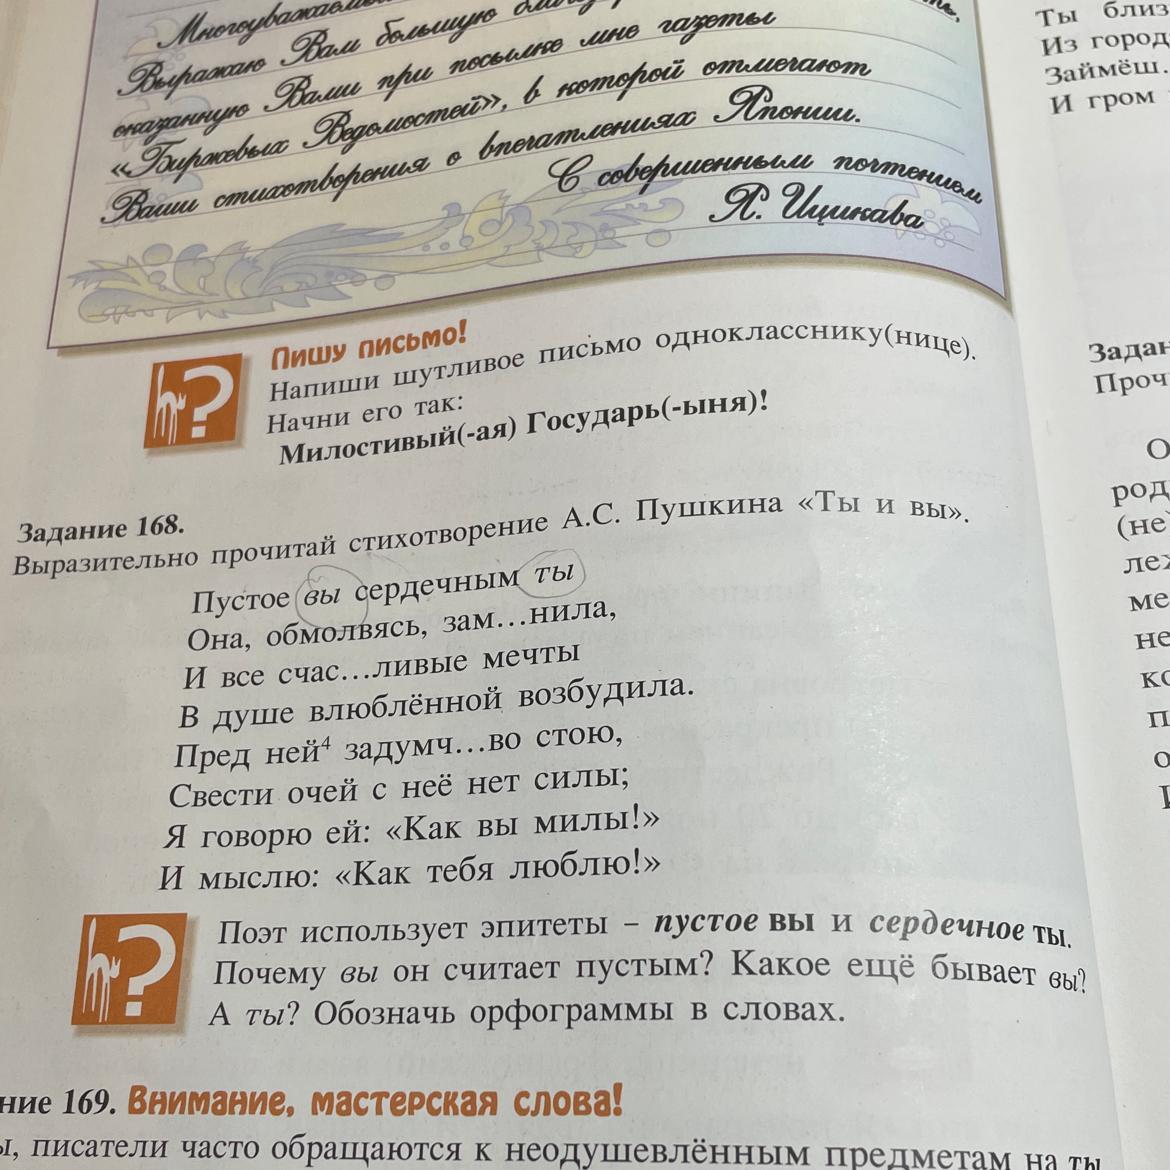 Выражаю Вам большую
оказанную Вами при посылке мне газеты
«Биржевых Ведомостей», в которой отмечают
Ваши стихотворения о впечатлениях Японии.
С совершенным почтением
Я. Ишикава
Ты близ
Из город
Займёш.
И гром
Пишу письмо!
Напиши шутливое письмо однокласснику(нице).
Начни его так:
Милостивый(-ая) Государь(-ыня)!
Задание 168.
Выразительно прочитай стихотворение А.С. Пушкина «Ты и вы».
Пустое вы сердечным ты
Она, обмолвясь, зам...нила,
И все счас...ливые мечты
В душе влюблённой возбудила.
Пред ней⁴ задумч...во стою,
Свести очей с неё нет силы;
Я говорю ей: «Как вы милы!»
И мыслю: «Как тебя люблю!»
Поэт использует эпитеты – пустое вы и сердечное ты.
Почему вы он считает пустым? Какое ещё бывает вы?
А ты? Обозначь орфограммы в словах.
ние 169. Внимание, мастерская слова!
ы, писатели часто обращаются к неодушевлённым предметам на ты
Задан
Проч
О
род
(не)
леж
ме
не
ко
п
о